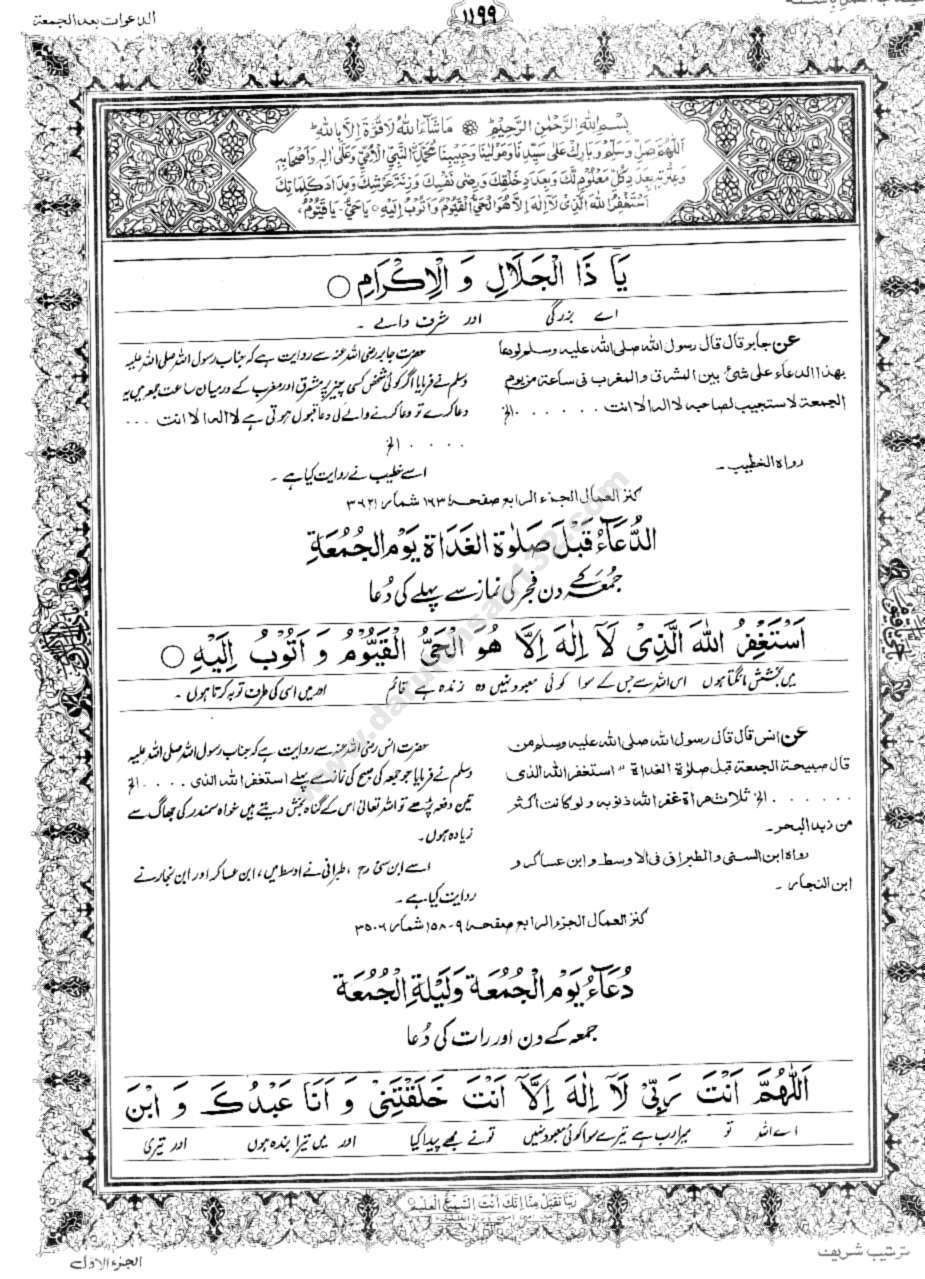 الدعوات بعد الجمعة
١١٩٩
بِسْمِ اللهِ الرَّحْمٰنِ الرَّحِيْمِ مَا شَآءَ اللهُ لَا قُوَّةَ اِلَّا بِاللهِ
اَللّٰهُمَّ صَلِّ وَسَلِّمْ وَبَارِكْ عَلٰى سَيِّدِنَا وَمَوْلٰينَا وَحَبِيْبِنَا مُحَمَّدِ النَّبِيِّ الْاُمِّيِّ وَعَلٰى اٰلِهٖ وَاَصْحَابِهٖ
وَعِتْرَتِهٖ بِعَدَدِ كُلِّ مَعْلُوْمٍ لَّكَ وَبِعَدَدِ خَلْقِكَ وَرِضٰى نَفْسِكَ وَزِنَةِ عَرْشِكَ وَمِدَادِ كَلِمَاتِكَ
اَسْتَغْفِرُ اللهَ الَّذِىْ لَآ اِلٰهَ اِلَّا هُوَ الْحَيُّ الْقَيُّوْمُ وَاَتُوْبُ اِلَيْهِ يَا حَيُّ يَا قَيُّوْمُ
يَا ذَا الْجَلَالِ وَ الْاِكْرَامِ
اے بزرگی اور شرف والے ۔
عن جابر قال قال رسول الله صلى الله عليه وسلم لودعا
بهذا الدعاء على شئ بين المشرق والمغرب فى ساعة من يوم
الجمعة لاستجيب لصاحبه لا اله الا انت . . . . . . . . الخ
رواه الخطيب ۔
حضرت جابر رضی اللہ عنہ سے روایت ہے کہ جناب رسول اللہ صلی اللہ علیہ
وسلم نے فرمایا اگر کوئی شخص کسی چیز پر مشرق اور مغرب کے درمیان ساعت جمعہ میں یہ
دعا کرے تو دعا کرنے والے کی دعا قبول ہوتی ہے لا اله الا انت ...
. . . . الخ
اسے خطیب نے روایت کیا ہے ۔
كنز العمال الجزء الرابع صفحة ١٦٣ شمار ٣٦٢١
الدُّعَآءُ قَبْلَ صَلٰوةِ الْغَدَاةِ يَوْمَ الْجُمُعَةِ
جمعہ کے دن فجر کی نماز سے پہلے کی دُعا
اَسْتَغْفِرُ اللهَ الَّذِىْ لَآ اِلٰهَ اِلَّا هُوَ الْحَىُّ الْقَيُّوْمُ وَ اَتُوْبُ اِلَيْهِ
میں بخشش مانگتا ہوں اس اللہ سے جس کے سوا کوئی معبود نہیں وہ زندہ ہے قائم اور میں اسی کی طرف توبہ کرتا ہوں ۔
عن انس قال قال رسول الله صلى الله عليه وسلم من
قال صبيحة الجمعة قبل صلوة الغداة " استغفر الله الذى
. . . . . . الخ ثلاث مراة غفر الله ذنوبه و لو كانت اكثر
من زبد البحر ۔
رواه ابن السنى و الطبرانى فى الاوسط و ابن عساكر و
ابن النجار ۔
حضرت انس رضی اللہ عنہ سے روایت ہے کہ جناب رسول اللہ صلی اللہ علیہ
وسلم نے فرمایا جو جمعہ کی صبح کی نماز سے پہلے استغفر الله الذى . . . . الخ
تین دفعہ پڑھے تو اللہ تعالیٰ اس کے گناہ بخش دیتے ہیں خواہ سمندر کی جھاگ سے
زیادہ ہوں ۔
اسے ابن سنی رح ، طبرانی نے اوسط میں ، ابن عساکر اور ابن نجار نے
روایت کیا ہے ۔
كنز العمال الجزء الرابع صفحة ٩-١٥٨ شمار ٣٥٠٦
دُعَآءُ يَوْمِ الْجُمُعَةِ وَلَيْلَةِ الْجُمُعَةِ
جمعہ کے دن اور رات کی دُعا
اَللّٰهُمَّ اَنْتَ رَبِّىْ لَآ اِلٰهَ اِلَّآ اَنْتَ خَلَقْتَنِىْ وَ اَنَا عَبْدُكَ وَ ابْنُ
اے اللہ تو میرا رب ہے تیرے سوا کوئی معبود نہیں تو نے مجھے پیدا کیا اور میں تیرا بندہ ہوں اور تیری
رَبَّنَا تَقَبَّلْ مِنَّا اِنَّكَ اَنْتَ السَّمِيْعُ الْعَلِيْمُ
ترتیب شریف
الجزء الاول